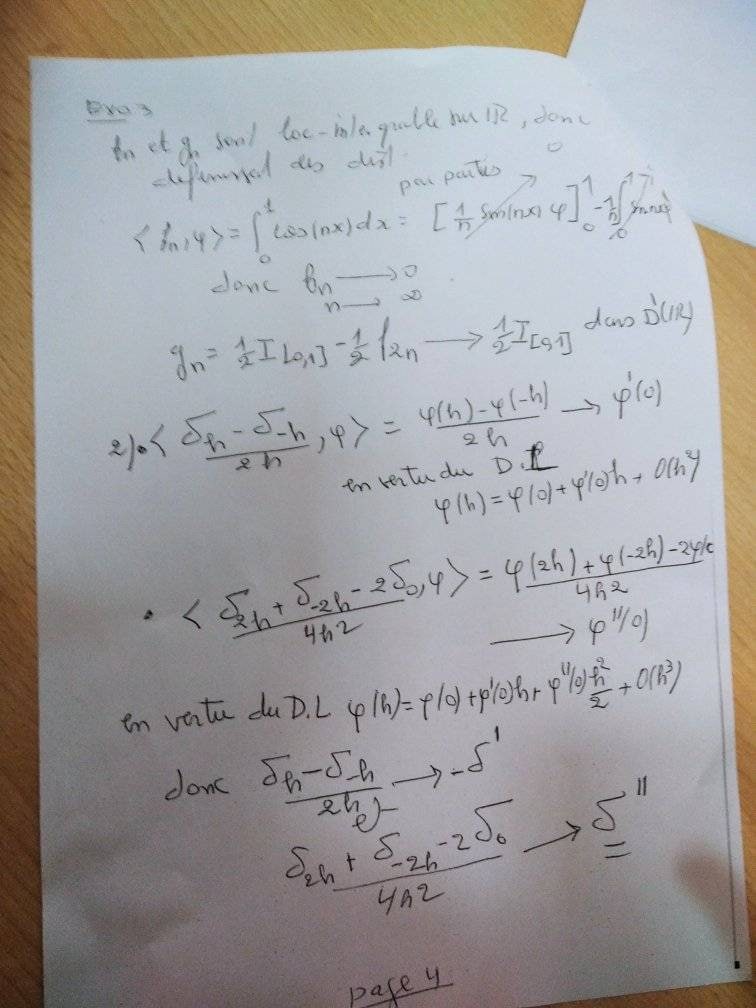 Exo 3
fn et gn sont loc-intégrable sur IR, donc
définissent des dist.
par parties 0
< fn, φ > = ∫₀¹ cos(nx) dx = [ 1/n sin(nx) φ ]₀¹ - 1/n ∫₀¹ sin nx
donc fn → 0
n → ∞
gn = 1/2 I[0,1] - 1/2 f2n → 1/2 I[0,1] dans D'(IR)
2) • < (δh - δ-h)/2h , φ > = (φ(h) - φ(-h))/2h → φ'(0)
en vertu du D.L
φ(h) = φ(0) + φ'(0)h + O(h²)
• < (δ2h + δ-2h - 2δ0)/4h2 , φ > = (φ(2h) + φ(-2h) - 2φ(0)/4h2
→ φ''(0)
en vertu du D.L φ(h) = φ(0) + φ'(0)h + φ''(0) h²/2 + O(h³)
donc (δh - δ-h)/2h → -δ'
et
(δ2h + δ-2h - 2δ0)/4h2 → δ''
page 4